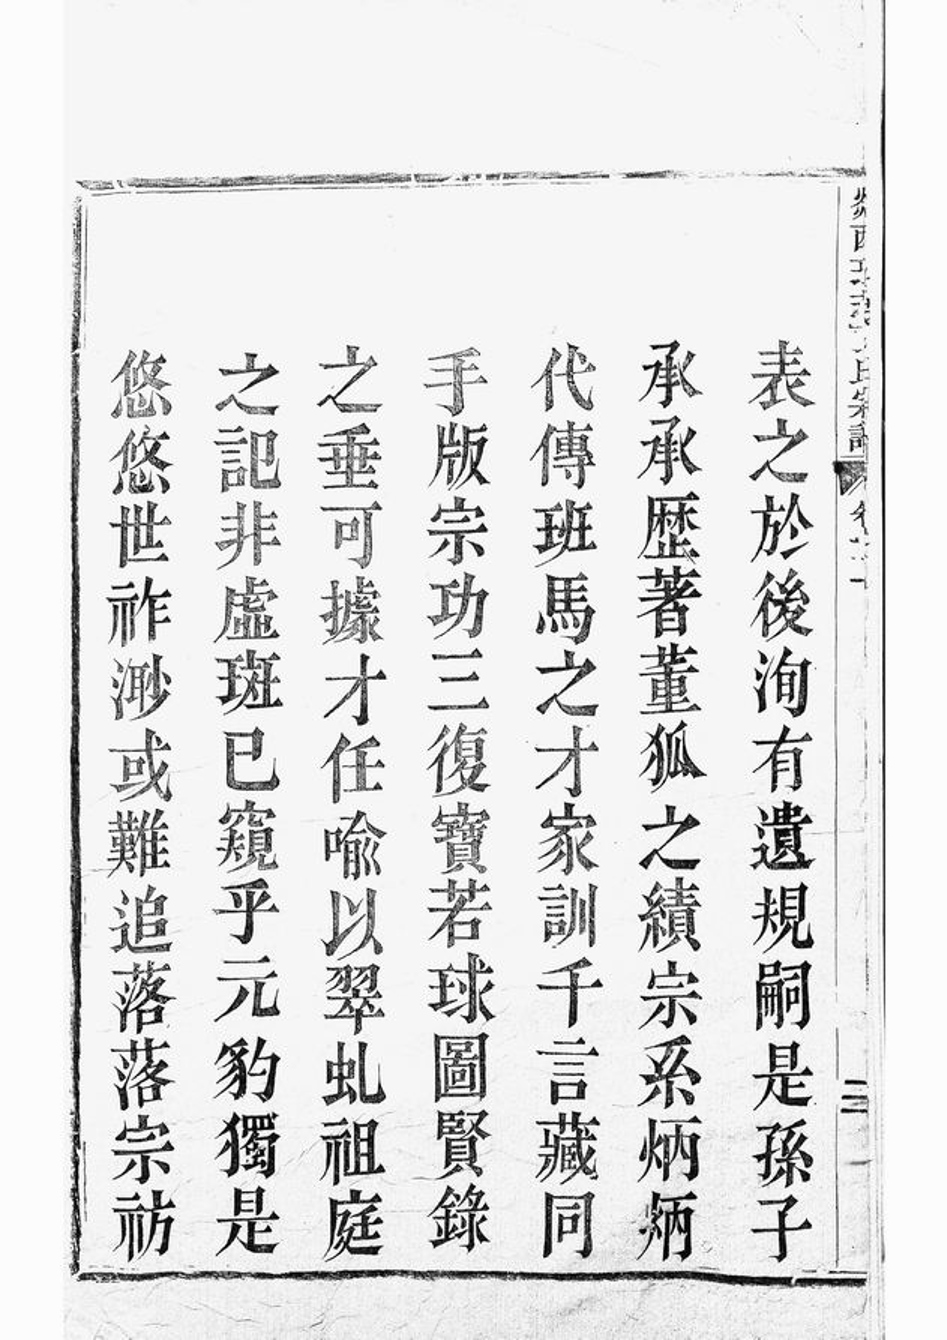 表之於後洵有遺規嗣是孫子
承承歷著董狐之績宗系炳炳
代傳班馬之才家訓千言藏同
手版宗功三復寶若球圖賢錄
之垂可據才任喻以翠虬祖庭
之記非虛斑已窺乎元豹獨是
悠悠世祚渺或難追落落宗祊
氏宗譜
二